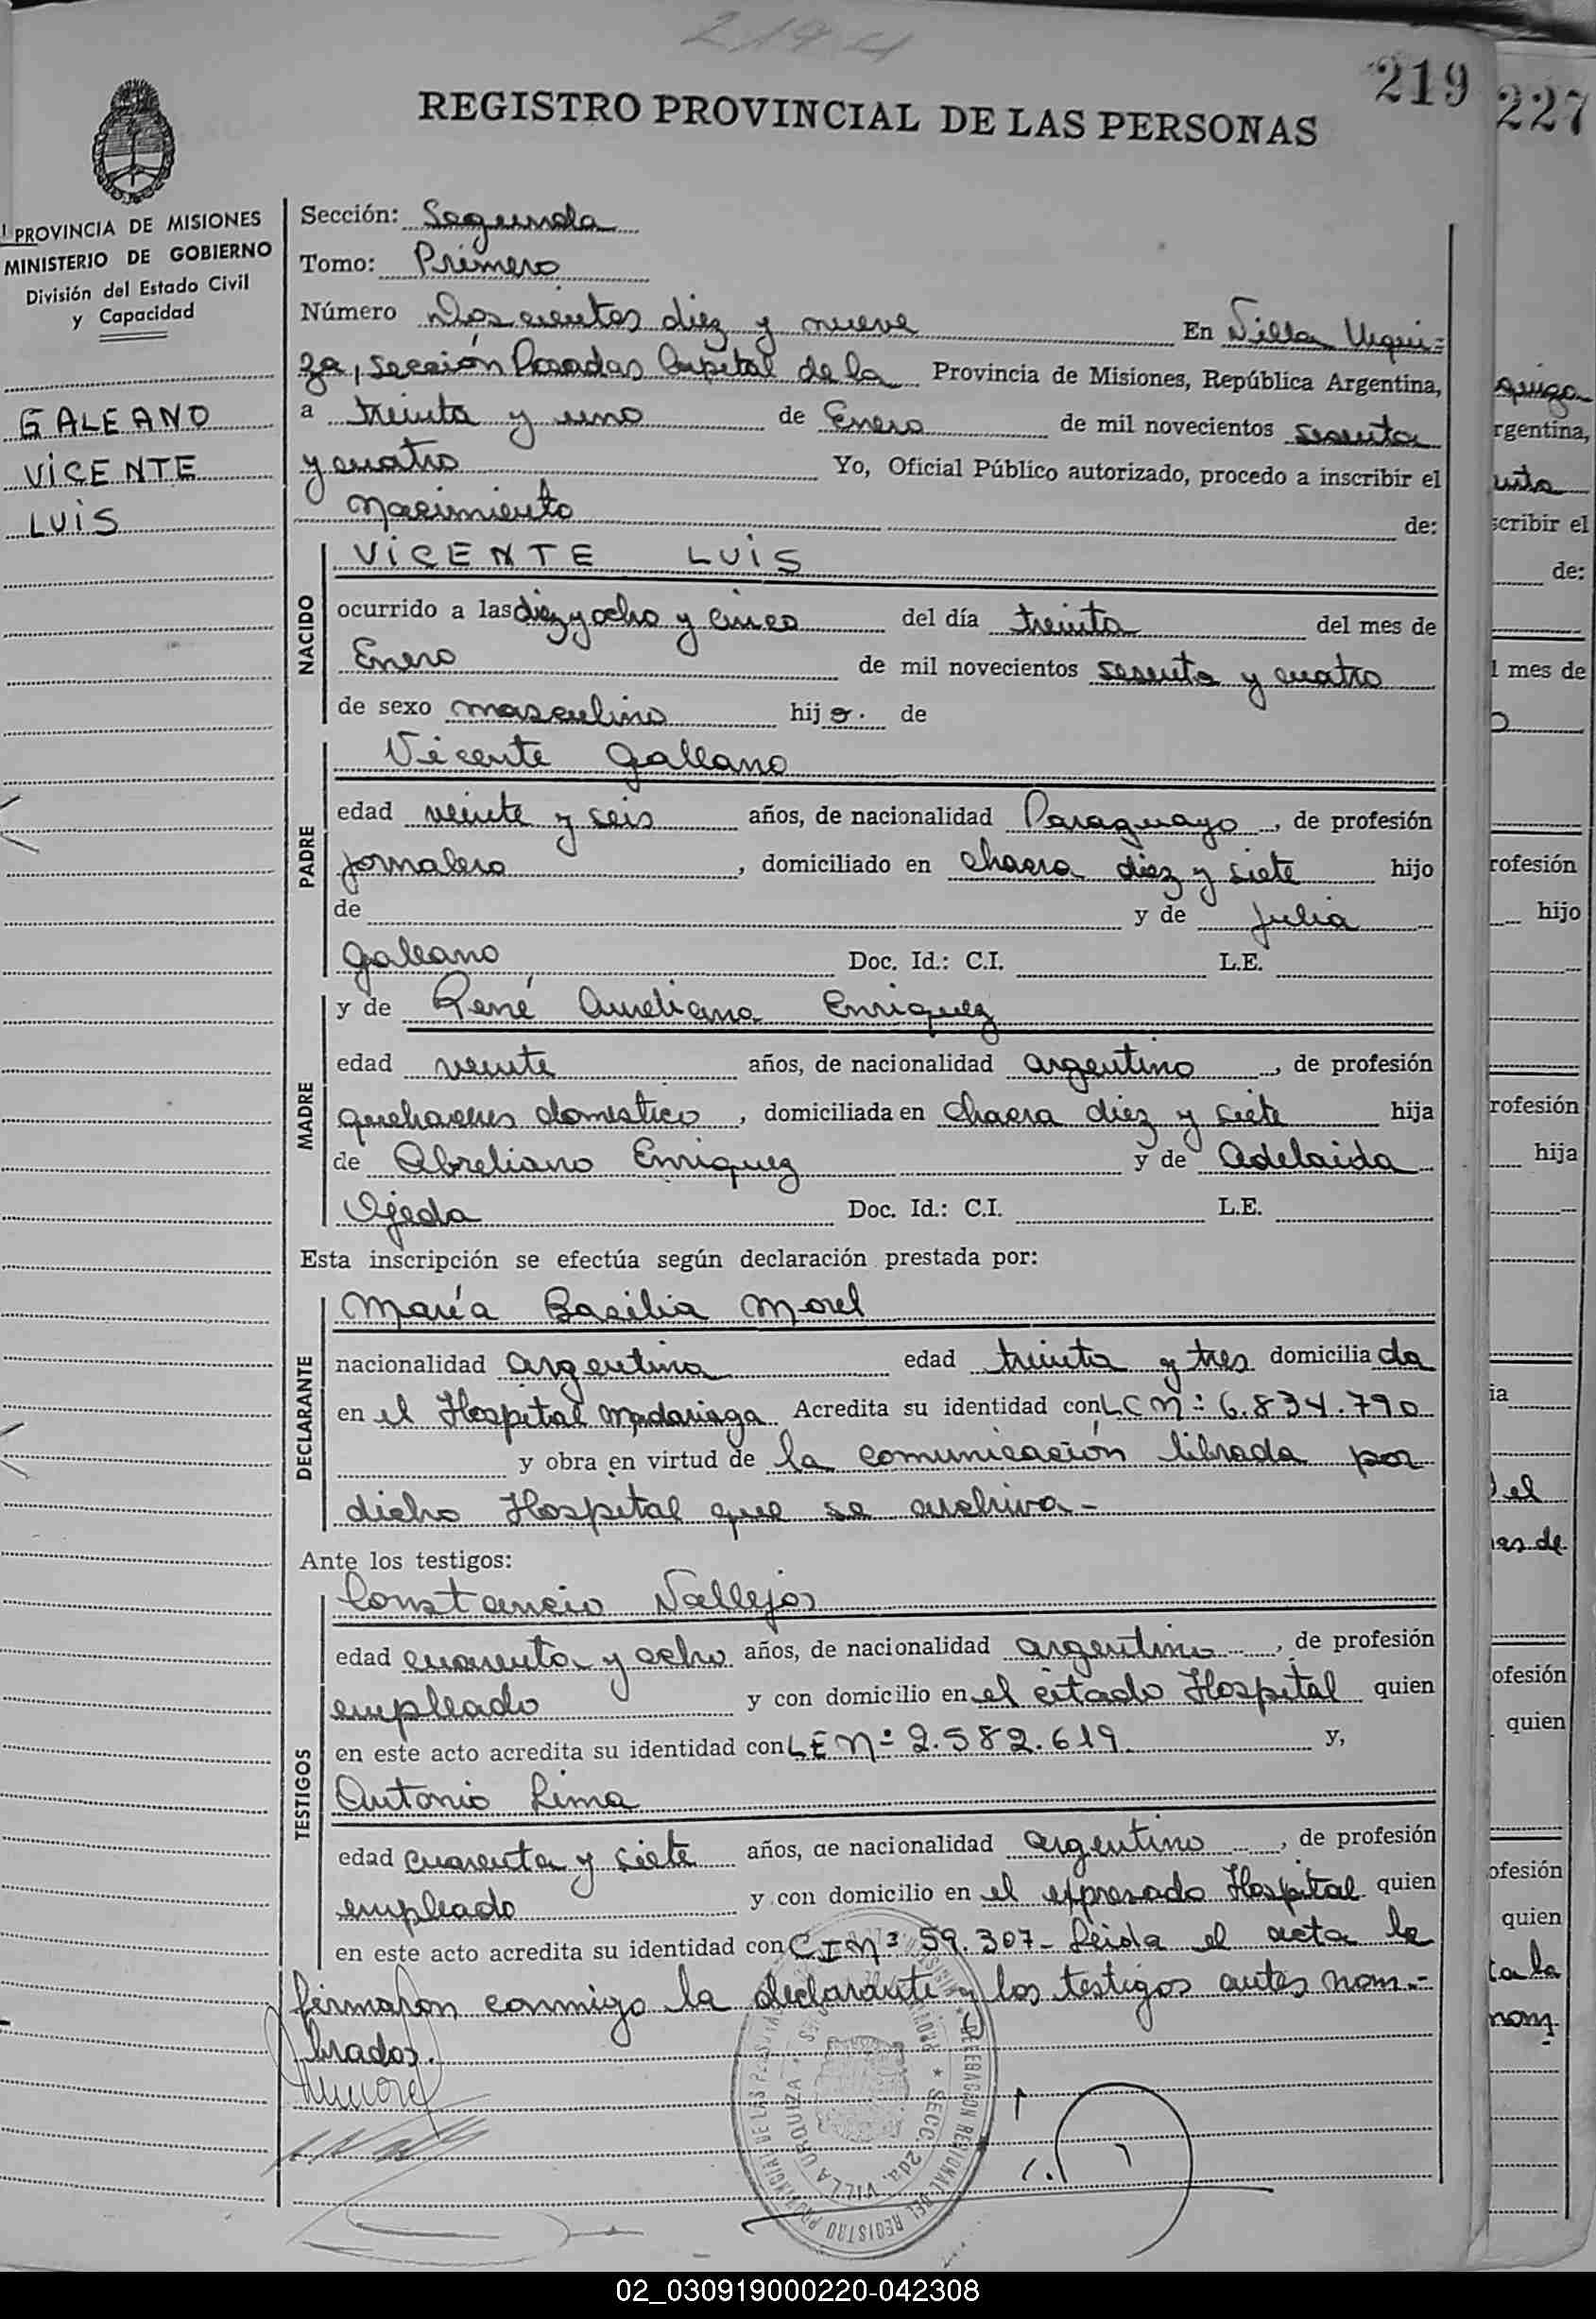 2194
219
227
REGISTRO PROVINCIAL DE LAS PERSONAS
PROVINCIA DE MISIONES
MINISTERIO DE GOBIERNO
División del Estado Civil
y Capacidad
GALEANO
VICENTE
LUIS
Sección: Segunda
Tomo: Primero
Número Doscientos diez y nueve En Villa Urqui=
za, sección Posadas Capital de la Provincia de Misiones, República Argentina,
a treinta y uno de Enero de mil novecientos sesenta
y cuatro Yo, Oficial Público autorizado, procedo a inscribir el
Nacimiento de:
NACIDO
VICENTE LUIS
ocurrido a las diez y ocho y cinco del día treinta del mes de
Enero de mil novecientos sesenta y cuatro
de sexo masculino hijo. de
PADRE
Vicente Galeano
edad veinte y seis años, de nacionalidad Paraguayo, de profesión
jornalero, domiciliado en chacra diez y siete hijo
de y de Julia
Galeano Doc. Id.: C.I. L.E.
MADRE
y de René Aureliana Enriquez
edad veinte años, de nacionalidad argentina, de profesión
quehaceres domestico, domiciliada en chacra diez y siete hija
de Abreliano Enriquez y de Adelaida
Ojeda Doc. Id.: C.I. L.E.
Esta inscripción se efectúa según declaración prestada por:
DECLARANTE
María Basilia Morel
nacionalidad argentina edad treinta y tres domiciliada
en el Hospital Madariaga Acredita su identidad con LC Nº 6.834.790
y obra en virtud de la comunicación librada por
dicho Hospital que se archiva-
Ante los testigos:
TESTIGOS
Constancio Vallejos
edad cuarenta y ocho años, de nacionalidad argentino, de profesión
empleado y con domicilio en el citado Hospital quien
en este acto acredita su identidad con LE Nº 2.582.619 y,
Antonio Lima
edad cuarenta y siete años, de nacionalidad argentino, de profesión
empleado y con domicilio en el expresado Hospital quien
en este acto acredita su identidad con CI Nº 59.307- Leida el acta la
firmaron conmigo la declarante y los testigos antes nom.-
brados.
DELEGACION REGIONAL DEL REGISTRO PROVINCIAL DE LAS PERSONAS
SECC. 2da. VILLA URQUIZA
quiza
rgentina,
nta
scribir el
de:
l mes de
o
rofesión
hijo
rofesión
hija
ia
el
es de
ofesión
quien
ofesión
quien
ta la
nom
02_030919000220-042308